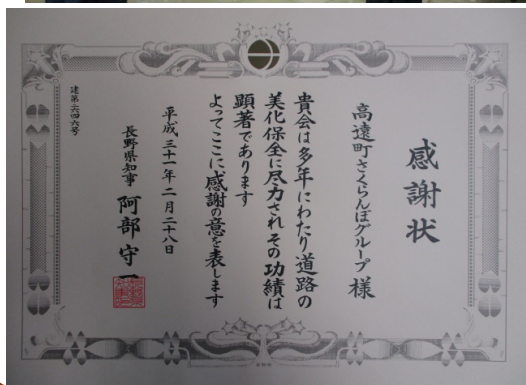 感謝状
高遠町さくらんぼグループ 様
貴会は多年にわたり道路の
美化保全に尽力されその功績は
顕著であります
よってここに感謝の意を表します
平成三十一年二月二十八日
長野県知事 阿部守一